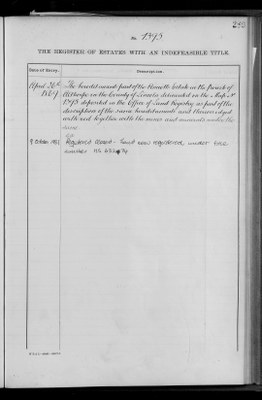 No. 1395
THE REGISTER OF ESTATES WITH AN INDEFEASIBLE TITLE.
Date of Entry. Description.
April 26th The hereditaments part of the Estate in the Parish of
1869 in the County of Lincoln delineated on the Map No
1395 deposited in the Office of Land Registry as part of the
description of the same hereditaments and thereon edged
with red together with the mines and minerals under the
same
Registered closed - land now registered under title
number